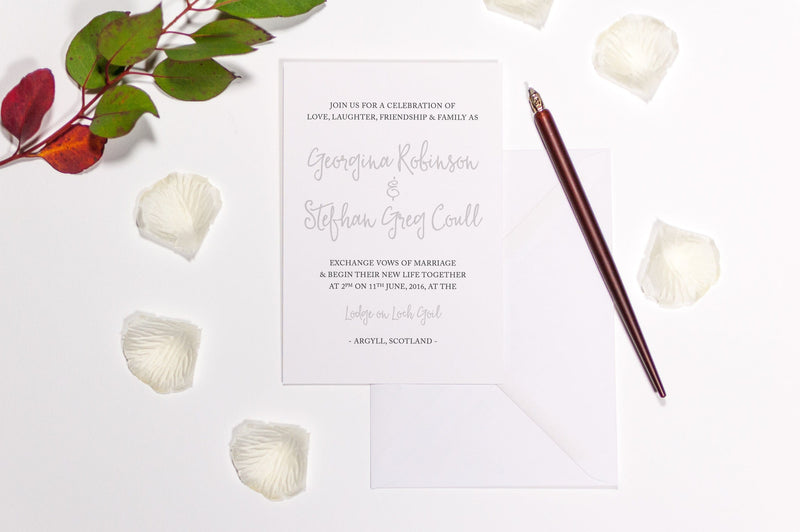 JOIN US FOR A CELEBRATION OF
LOVE, LAUGHTER, FRIENDSHIP & FAMILY AS
Georgina Robinson
&
Stefhan Greg Coull
EXCHANGE VOWS OF MARRIAGE
& BEGIN THEIR NEW LIFE TOGETHER
AT 2PM ON 11TH JUNE, 2016, AT THE
Lodge on Loch Goil
- ARGYLL, SCOTLAND -